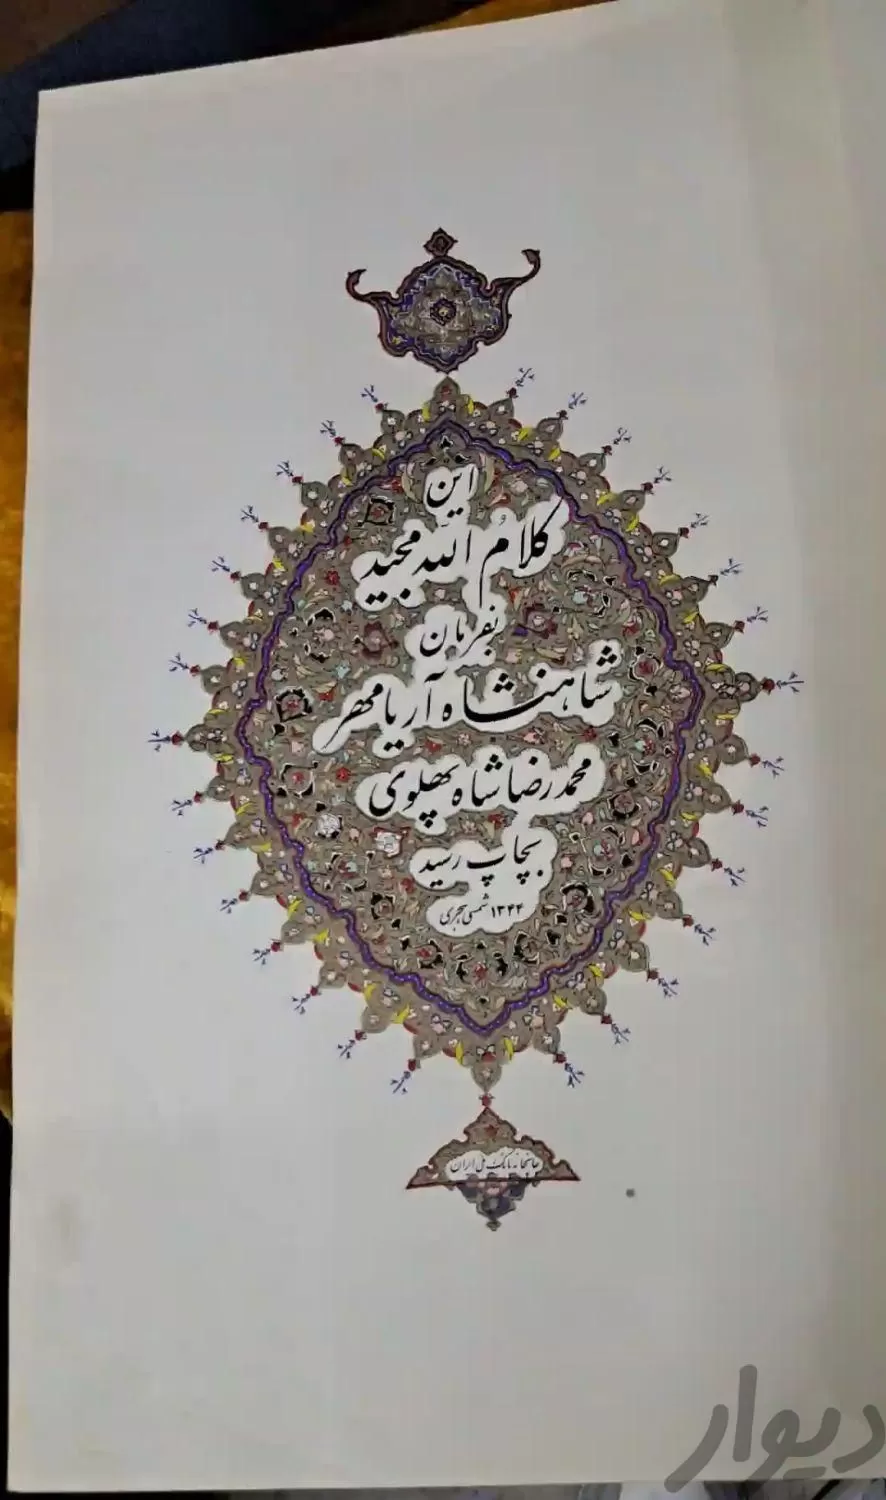 این
کلامُ الله مجید
بفرمان
شاهنشاه آریامهر
محمدرضا شاه پهلوی
بچاپ رسید
۱۳۴۴ شمسی هجری
چاپخانه بانک ملی ایران
دیوار